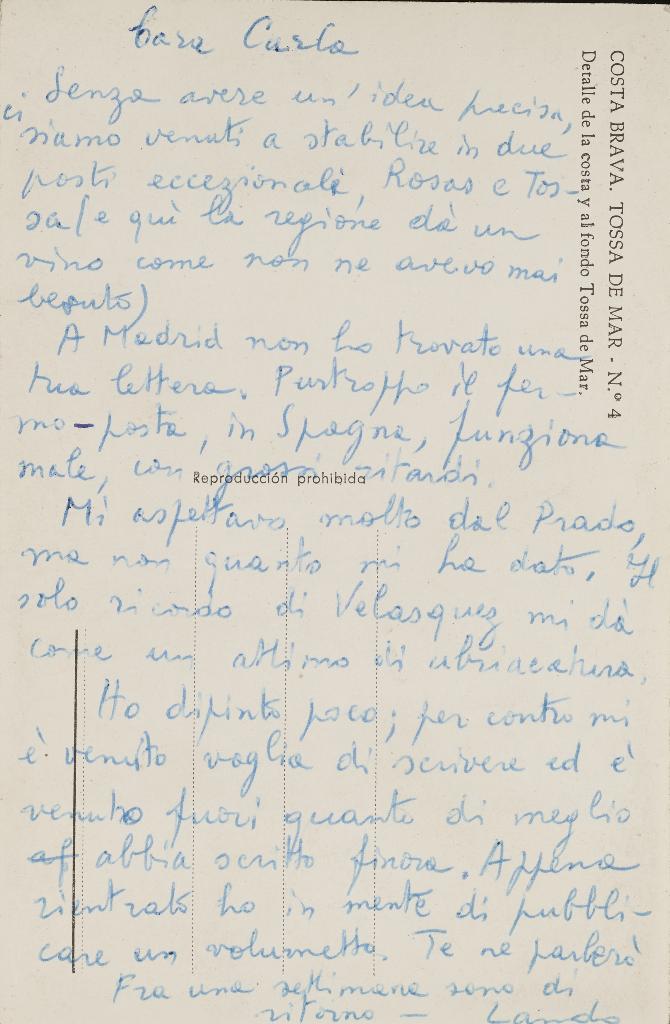 Cara Carla
Senza avere un' idea precisa,
ci siamo venuti a stabilire in due
posti eccezionali, Rosas e Tos-
sa (e quì la regione dà un
vino come non ne avevo mai
bevuto)
A Madrid non ho trovato una
tua lettera. Purtroppo il fer-
mo-posta, in Spagna, funziona
male, con grossi ritardi.
Mi aspettavo molto dal Prado,
ma non quanto mi ha dato. Il
solo ricordo di Velasquez mi dà
come un attimo di ubriacatura.
Ho dipinto poco; per contro mi
è venuto voglia di scrivere ed è
venuto fuori quanto di meglio
abbia scritto finora. Appena
rientrato ho in mente di pubbli-
care un volumetto. Te ne parlerò
Fra una settimana sono di
ritorno — Lando
COSTA BRAVA. TOSSA DE MAR - N.º 4
Detalle de la costa y al fondo Tossa de Mar.
Reproducción prohibida